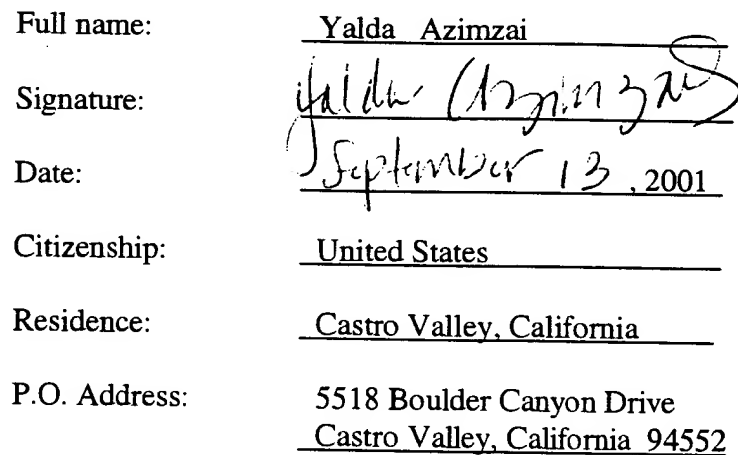 Full name: Yalda Azimzai
Signature: Yalda Azimzai
Date: September 13, 2001
Citizenship: United States
Residence: Castro Valley, California
P.O. Address: 5518 Boulder Canyon Drive
Castro Valley, California 94552